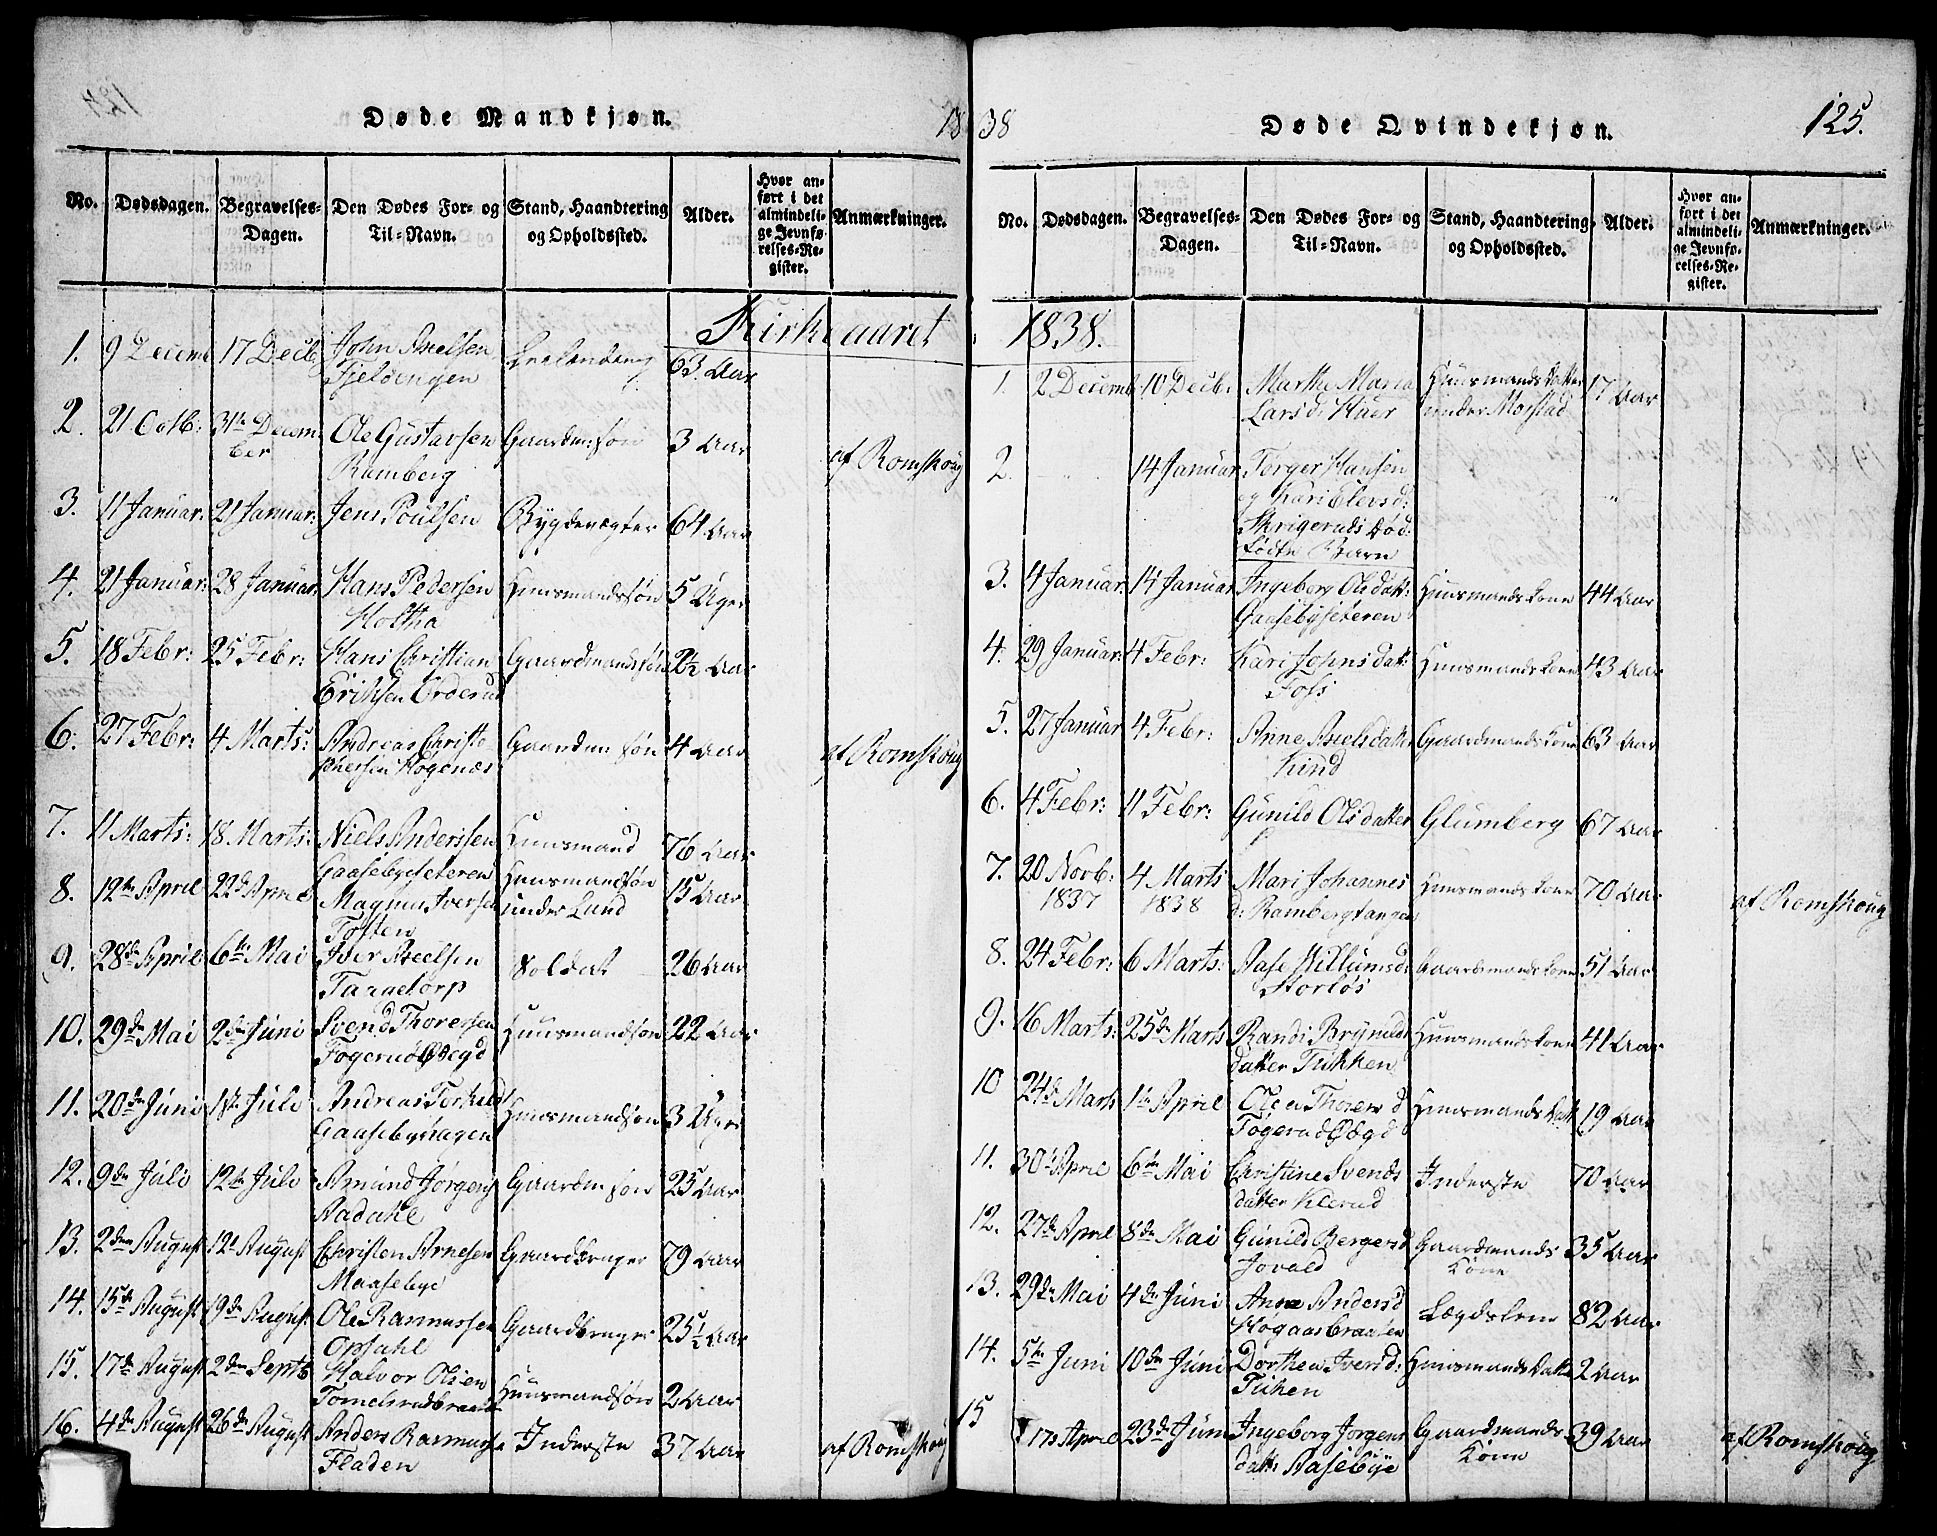 Døde Mandkjøn.
18
No. Dødsdagen. Begravelses-Dagen. Den Dødes For- og Til-Navn. Stand, Haandtering og Opholdssted. Alder. Hvor anført i det almindelige Jevnførelses-Register. Anmærkninger.
Kirkeaaret
1. 9 Decemb 17 Decb John Axelsen Fjeldengen 63 Aar
2. 21 Octb: 31te December Ole Gustavsen Ramberg Gaardm: søn 3 Aar af Romskoug
3. 11 Januar: 21 Januar: Jens Poulsen Bygdevægter 64 Aar
4. 21 Januar: 28 Januar: Hans Pedersen Holtha Huusmandssøn 5 Uger
5. 18 Febr: 25 Febr: Hans Christian Eriksen Orderud Gaardmandssøn 2½ Aar
6. 27 Febr: 4 Marts: Andreas Christophersen Hogenæs Gaardm søn 4 Aar af Romskoug
7. 11 Marts: 18 Marts: Niels Anderssen Gaasebyseteren Huusmand 76 Aar
8. 12te April 22de April Magnus Iversen Toften Huusmandsøn under Lund 15 Aar
9. 28de April 6te Mai Iver Axelsen Taraldtorp Soldat 26 Aar
10. 29de Mai 2den Juni Svend Thoresen Togerud Ødegd Huusmandsøn 22 Aar
11. 20de Juni 1ste Juli Andreas Torkilds Gaasebyhagen Huusmandsøn 3 Uger
12. 9de Juli 12te Juli Amund Jørgens Aadahl Gaardm søn 25 Aar
13. 2den August 12te August Christen Arnesen Maasebye Gaardbruger 79 Aar
14. 15de August 19de August Ole Rasmussen Opsahl Gaardbruger 25½ Aar
15. 17de August 2den Septb Halvor Olsen Tomelsrudbraaten Huusmandsøn 2 Aar
16. 4de August 26de August Anders Rasmussen Fladen Inderste 37 Aar af Romskoug
38
Døde Qvindekjøn.
125.
No. Dødsdagen. Begravelses-Dagen. Den Dødes For- og Til-Navn. Stand, Haandtering og Opholdssted. Alder. Hvor anført i det almindelige Jevnførelses-Register. Anmærkninger.
1838.
1. 2 Decemb 10 Decb: Marthe Maria Larsd: Huer Huusmandsdatter under Morstad 17 Aar
2. 14 Januar Torger Hansen og Kari Elevsd: Skrigeruds dødfødte Barn
3. 4 Januar: 14 Januar Ingeborg Olsdatt: Gaasebyseteren Huusmandskone 44 Aar
4. 29 Januar: 4 Febr: Kari Johnsdatt: Foss Huusmandskone 43 Aar
5. 27 Januar 4 Febr: Anne Axelsdatter Kind Gaardmandskone 63 Aar
6. 4 Febr: 11 Febr: Gunild Olsdatter Glumberg 67 Aar
7. 20 Novb: 1837 4 Marts 1838 Mari Johannesd: Rambergtangen Huusmandskone 70 Aar af Romskoug
8. 24 Febr: 6 Marts: Aase Willumsd: Storløs Gaardmandskone 51 Aar
9. 16 Marts: 25de Marts Randi Brynildsdatter Tukken Huusmandskone 41 Aar
10 24de Marts 1te April Olea Thoresd Togerud Ødegd Huusmandsdatt 19 Aar
11. 30te April 6te Mai Christine Svendsdatter Klerud Inderste 70 Aar
12. 27de April 8de Mai Gunild Bergersd Jovald Gaardmands Kone 35 Aar
13. 29de Mai 4de Juni Anne Andersd Hogaasbraaten Lægdslem 82 Aar
14. 5te Juni 10de Juni Dorthea Iversd: Tukken Huusmandsdatter 2 Aar
15 17de April 23de Juni Ingeborg Jørgensdatt: Aasebye Gaardmands Kone 39 Aar af Romskoug